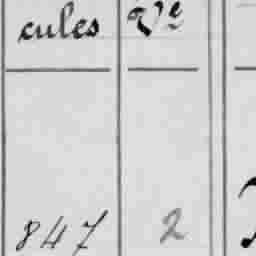 cules Ve
847 2